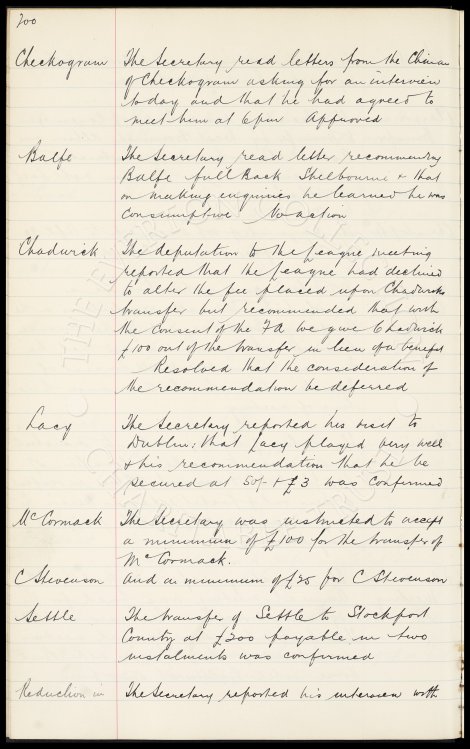 200
Checkogram The Secretary read letters from the Chman
of Checkogram asking for an interview
today and that he had agreed to
meet him at 6pm Approved
Balfe The Secretary read letter recommending
Balfe full Back Shelbourne & that
on making enquiries he learned he was
Consumptive No action
Chadwick The deputation to the League meeting
reported that the League had declined
to alter the fee placed upon Chadwicks
transfer but recommended that with
the consent of the FA we give Chadwick
£100 out of the transfer in lieu of a benefit
Resolved that the consideration of
the recommendation be deferred
Lacy The Secretary reported his visit to
Dublin: that Lacy played very well
& his recommendation that he be
secured at 50/- & £3 was confirmed
McCormack The Secretary was instructed to accept
a minimum of £100 for the transfer of
McCormack.
C Stevenson and a minimum of £25 for C Stevenson
Settle The transfer of Settle to Stockport
County at £200 payable in two
instalments was confirmed
Reduction in The Secretary reported his interview with
THE EVERTON COLLECTION
CHARITABLE TRUST